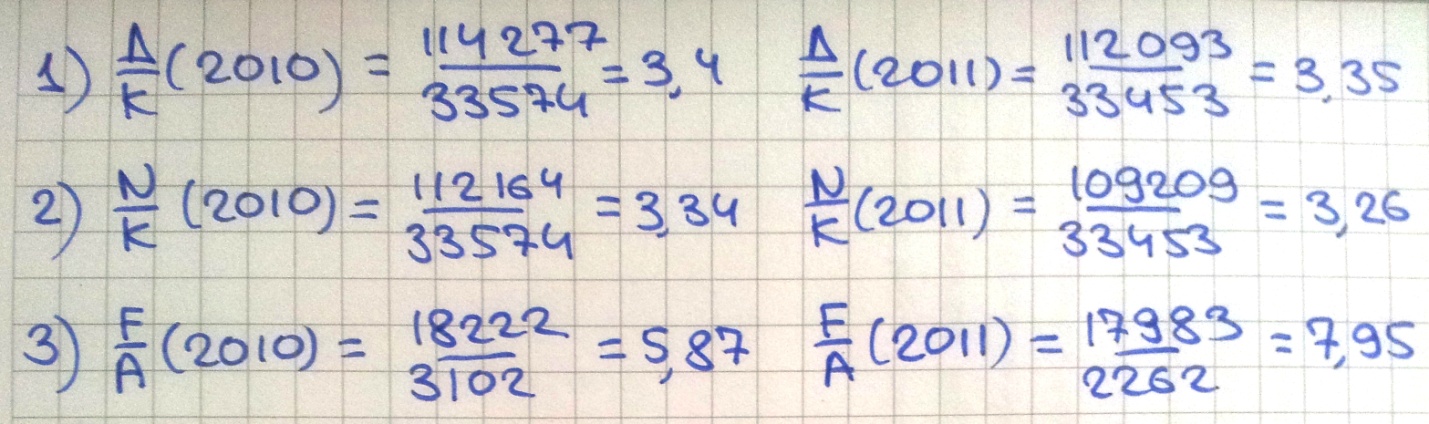 1) Δ/K (2010) = 114277/33574 = 3,4 Δ/K (2011) = 112093/33453 = 3,35
2) N/K (2010) = 112164/33574 = 3,34 N/K (2011) = 109209/33453 = 3,26
3) F/A (2010) = 18222/3102 = 5,87 F/A (2011) = 17983/2262 = 7,95